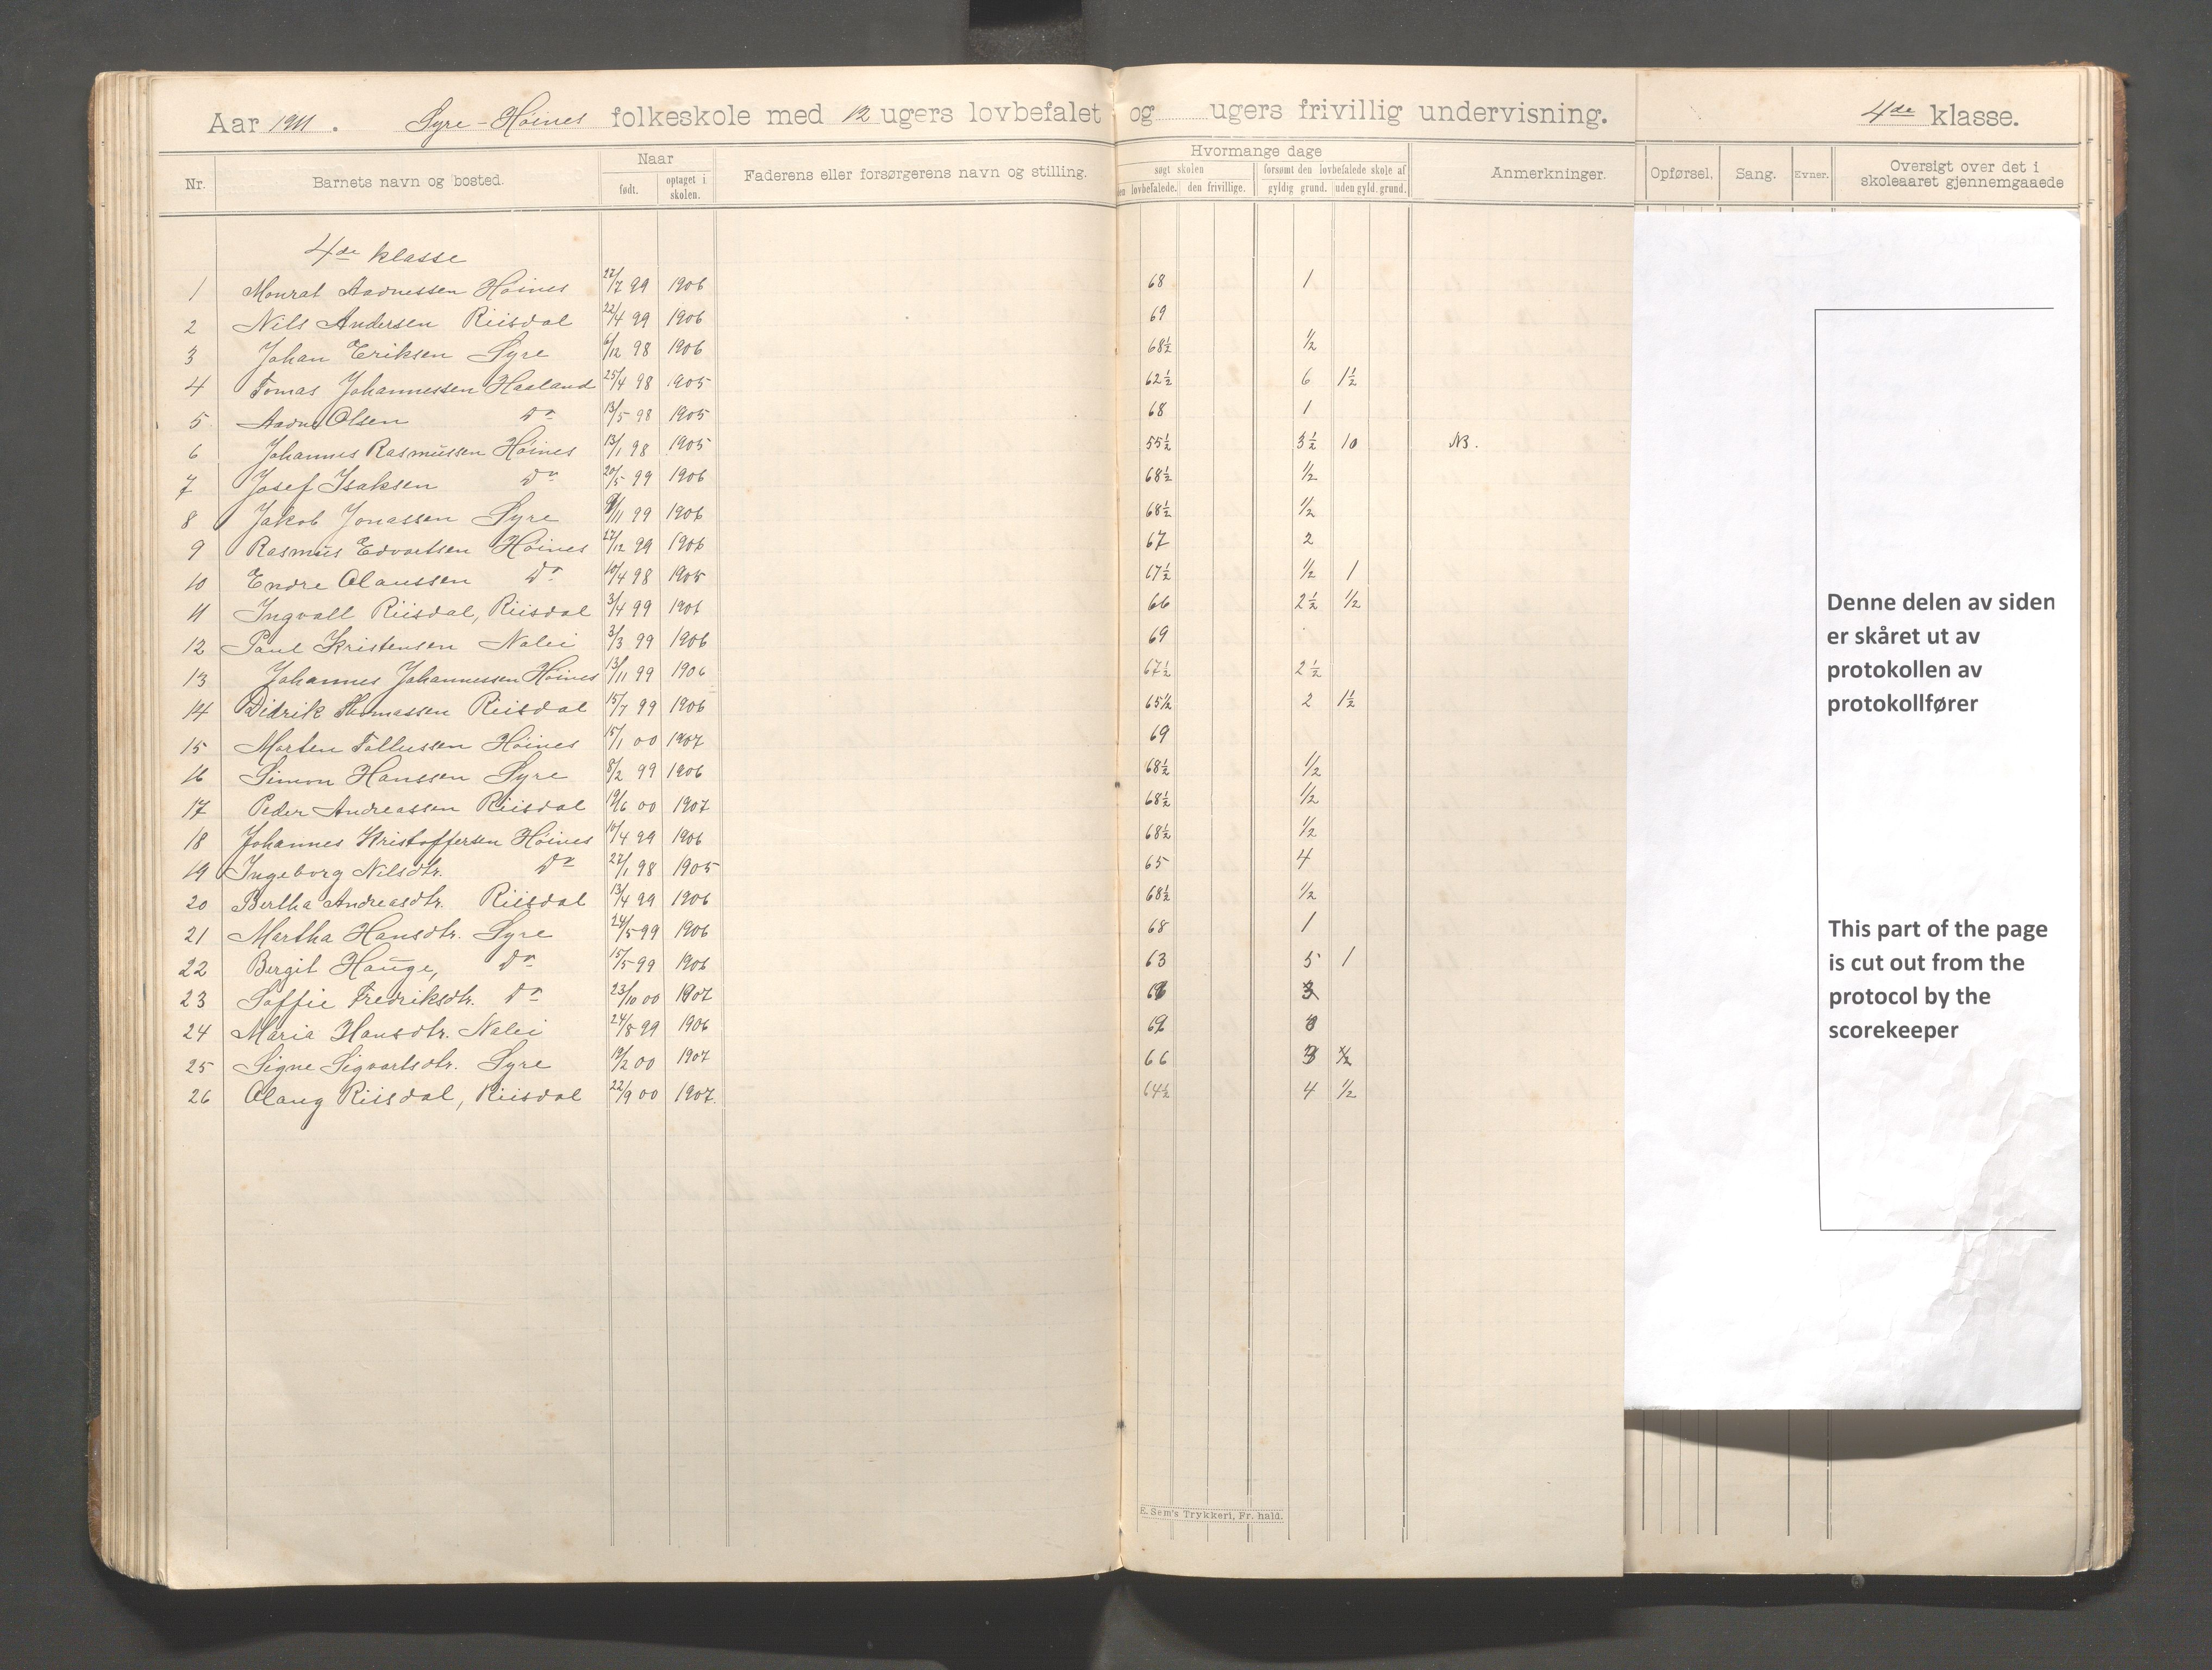 Aar 1911. Syre-Höines folkeskole med 12 ugers lovbefalet og ugers frivillig undervisning. 4de klasse.
Nr. Barnets navn og bosted. Naar født. optaget i skolen. Faderens eller forsørgerens navn og stilling. Hvormange dage søgt skolen den lovbefalede. den frivillige. forsømt den lovbefalede skole af gyldig grund. uden gyld. grund. Anmerkninger. Opførsel. Sang. Evner. Oversigt over det i skoleaaret gjennemgaaede
4de klasse
1 Monrat Aadnessen Höines 27/7 99 1906 68 1
2 Nils Andersen Riisdal 22/4 99 1906 69
3 Johan Eriksen Syre 6/12 98 1906 68½ ½
4 Tomas Johannessen Haaland 25/4 98 1905 62½ 6 1½
5 Aadne Olsen Do 13/5 98 1905 68 1
6 Johannes Rasmussen Höines 13/1 98 1905 55½ 3½ 10 NB.
7 Josef Isaksen Do 20/5 99 1906 68½ ½
8 Jakob Jonassen Syre 9/11 99 1906 68½ ½
9 Rasmus Edvartsen Höines 27/12 99 1906 67 2
10 Endre Olaussen Do 10/4 98 1905 67½ ½ 1
11 Ingvall Riisdal, Riisdal 3/4 99 1906 66 2½ ½
12 Paul Kristensen Nalei 3/3 99 1906 69
13 Johannes Johannessen Höines 13/11 99 1906 67½ 2½
14 Didrik Thomassen Riisdal 15/7 99 1906 65½ 2 1½
15 Morten Tollussen Höines 15/1 00 1907 69
16 Simon Hanssen Syre 8/2 99 1906 68½ ½
17 Peder Andreassen Riisdal 19/6 00 1907 68½ ½
18 Johannes Kristoffersen Höines 10/4 99 1906 68½ ½
19 Ingeborg Nilsdtr. Do 27/1 98 1905 65 4
20 Bertha Andreasdtr. Riisdal 13/4 99 1906 68½ ½
21 Martha Hansdtr. Syre 24/5 99 1906 68 1
22 Bergit Hauge, Do 15/5 99 1906 63 5 1
23 Soffie Fredriksdtr. Do 23/10 00 1907
24 Maria Hansdtr. Nalei 24/8 99 1906
25 Signe Sigvartsdtr. Syre 19/2 00 1907 66 3 ½
26 Olaug Riisdal, Riisdal 22/9 00 1907. 64½ 4 ½
Denne delen av siden
er skåret ut av
protokollen av
protokollfører
This part of the page
is cut out from the
protocol by the
scorekeeper
E. Sem's Trykkeri, Fr. hald.